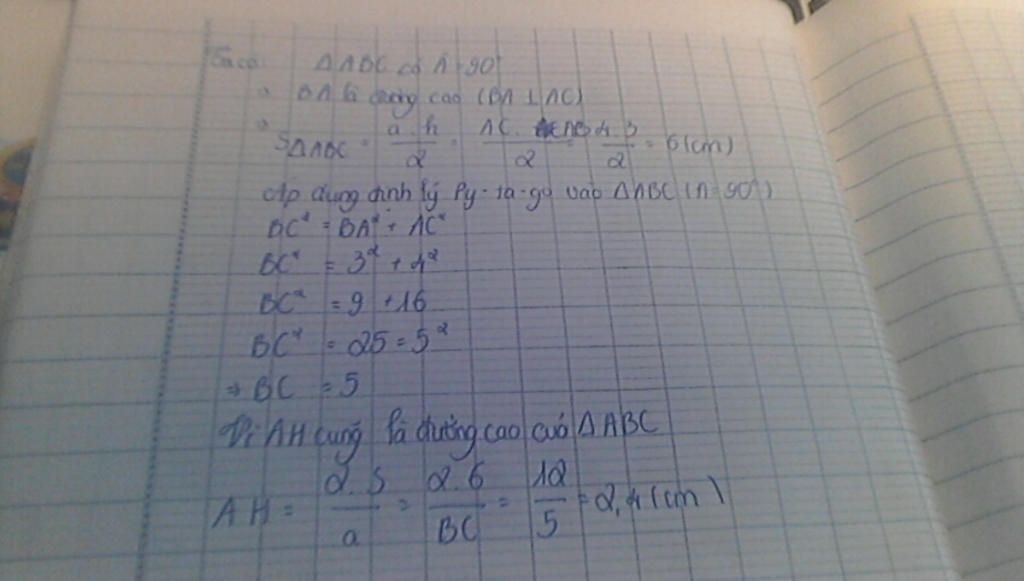 Ta có: ΔABC có A = 90°
⇒ BA là đường cao (BA ⊥ AC)
⇒ SΔABC = a.h/2 = AC.AB/2 = 4.3/2 = 6 (cm)
Áp dụng định lý Py-ta-go vào ΔABC (A = 90°)
BC² = BA² + AC²
BC² = 3² + 4²
BC² = 9 + 16
BC² = 25 = 5²
⇒ BC = 5
Vì AH cũng là đường cao của ΔABC
AH = 2.S/a = 2.6/BC = 12/5 = 2,4 (cm)